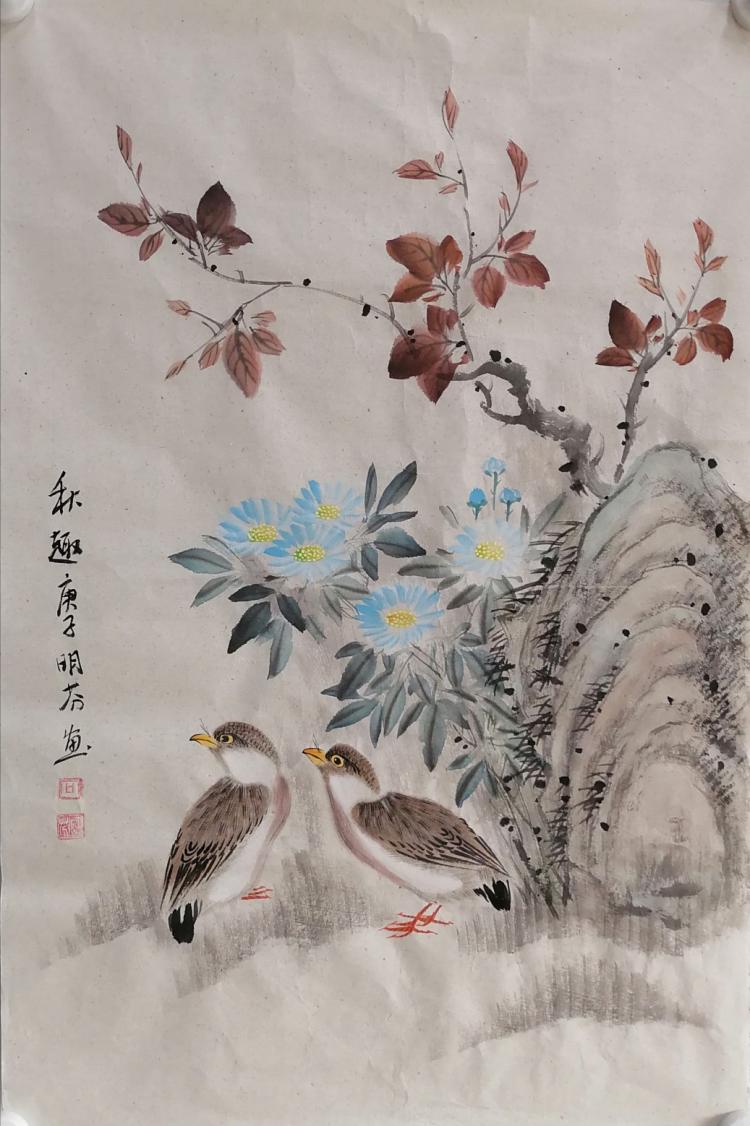 秋趣 庚子明芬画